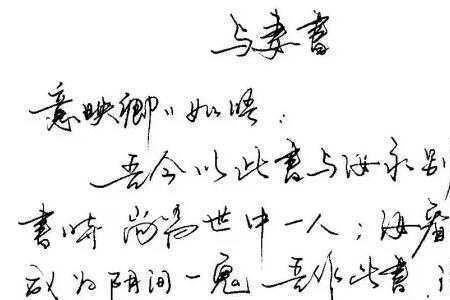 与妻書
意映卿〃如晤：
吾今以此書与汝永别
書時尚為世中一人；汝看
成为阴间一鬼 吾作此書